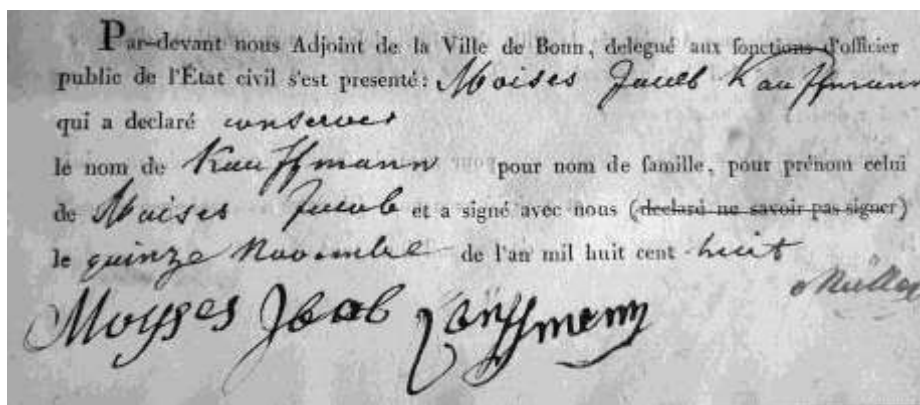 Par-devant nous Adjoint de la Ville de Bonn, delegué aux fonctions d'officier
public de l'État civil s'est presenté: Moises Jacob Kauffmann
qui a declaré conserver
le nom de Kauffmann pour nom de famille, pour prénom celui
de Moises Jacob et a signé avec nous (declaré ne savoir pas signer)
le quinze Novembre de l'an mil huit cent huit
Müller
Moyses Jacob Kauffmann